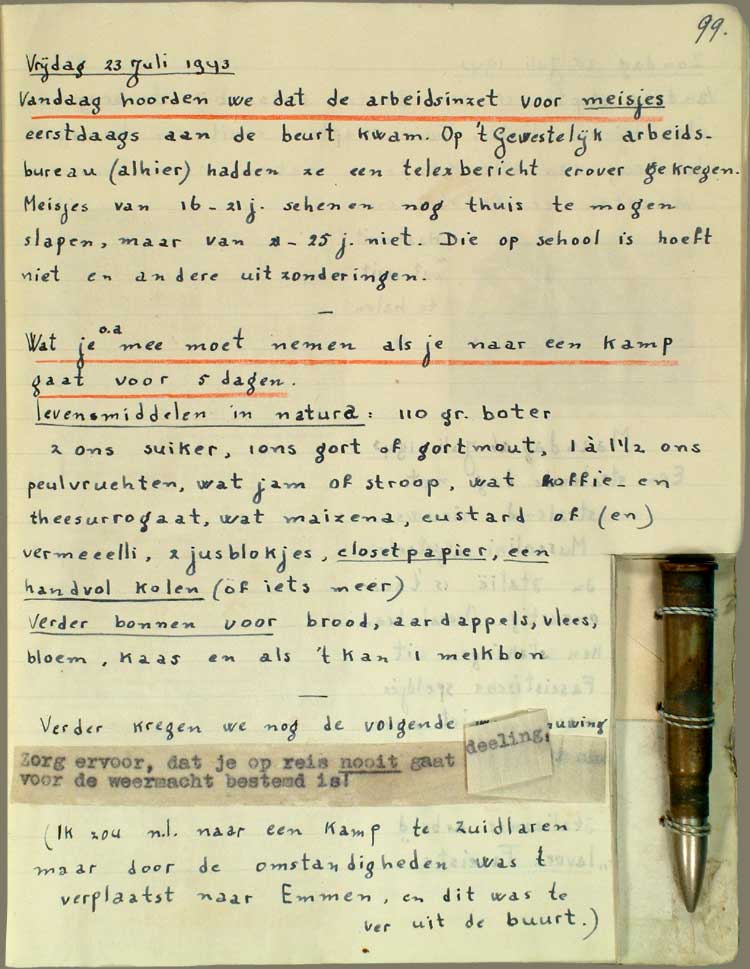 99.
Vrijdag 23 Juli 1943
Vandaag hoorden we dat de arbeidsinzet voor meisjes
eerstdaags aan de beurt kwam. Op 't Gewestelijk arbeids-
bureau (alhier) hadden ze een telexbericht erover gekregen.
Meisjes van 16-21 j. schenen nog thuis te mogen
slapen, maar van -25 j. niet. Die op school is hoeft
niet en andere uitzonderingen.
—
Wat je o.a mee moet nemen als je naar een kamp
gaat voor 5 dagen.
levensmiddelen in natura: 110 gr. boter
2 ons suiker, 1 ons gort of gortmout, 1 à 1½ ons
peulvruchten, wat jam of stroop, wat koffie- en
theesurrogaat, wat maizena, custard of (en)
vermecelli, 2 jusblokjes, closetpapier, een
handvol kolen (of iets meer)
Verder bonnen voor brood, aardappels, vlees,
bloem, kaas en als 't kan 1 melkbon
—
Verder kregen we nog de volgende uwing
Zorg ervoor, dat je op reis nooit gaat deeling,
voor de weermacht bestemd is!
(Ik zou n.l. naar een kamp te Zuidlaren
maar door de omstandigheden was 't
verplaatst naar Emmen, en dit was te
ver uit de buurt.)